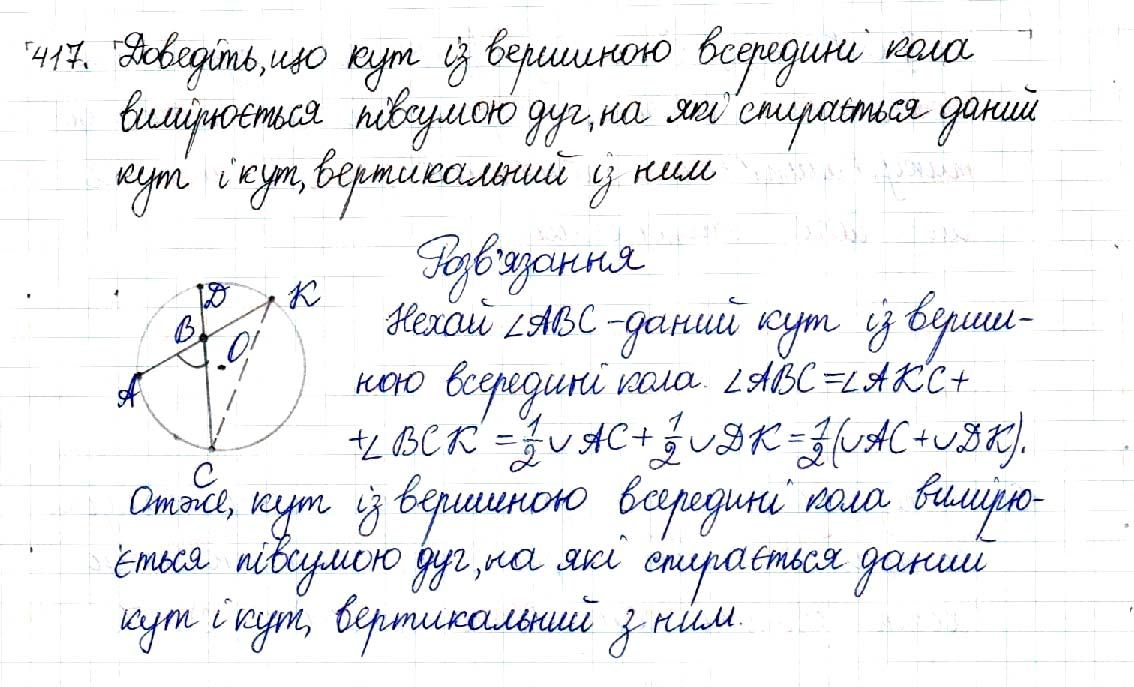 417. Доведіть, що кут із вершиною всередині кола
вимірюється півсумою дуг, на які спирається даний
кут і кут, вертикальний із ним
Розв'язання
D
K
B
O
A
C
Нехай ∠ABC - даний кут із верши-
ною всередині кола. ∠ABC = ∠AKC +
+∠BCK = 1/2 ∪AC + 1/2 ∪DK = 1/2 (∪AC + ∪DK).
Отже, кут із вершиною всередині кола вимірю-
ється півсумою дуг, на які спирається даний
кут і кут, вертикальний з ним.